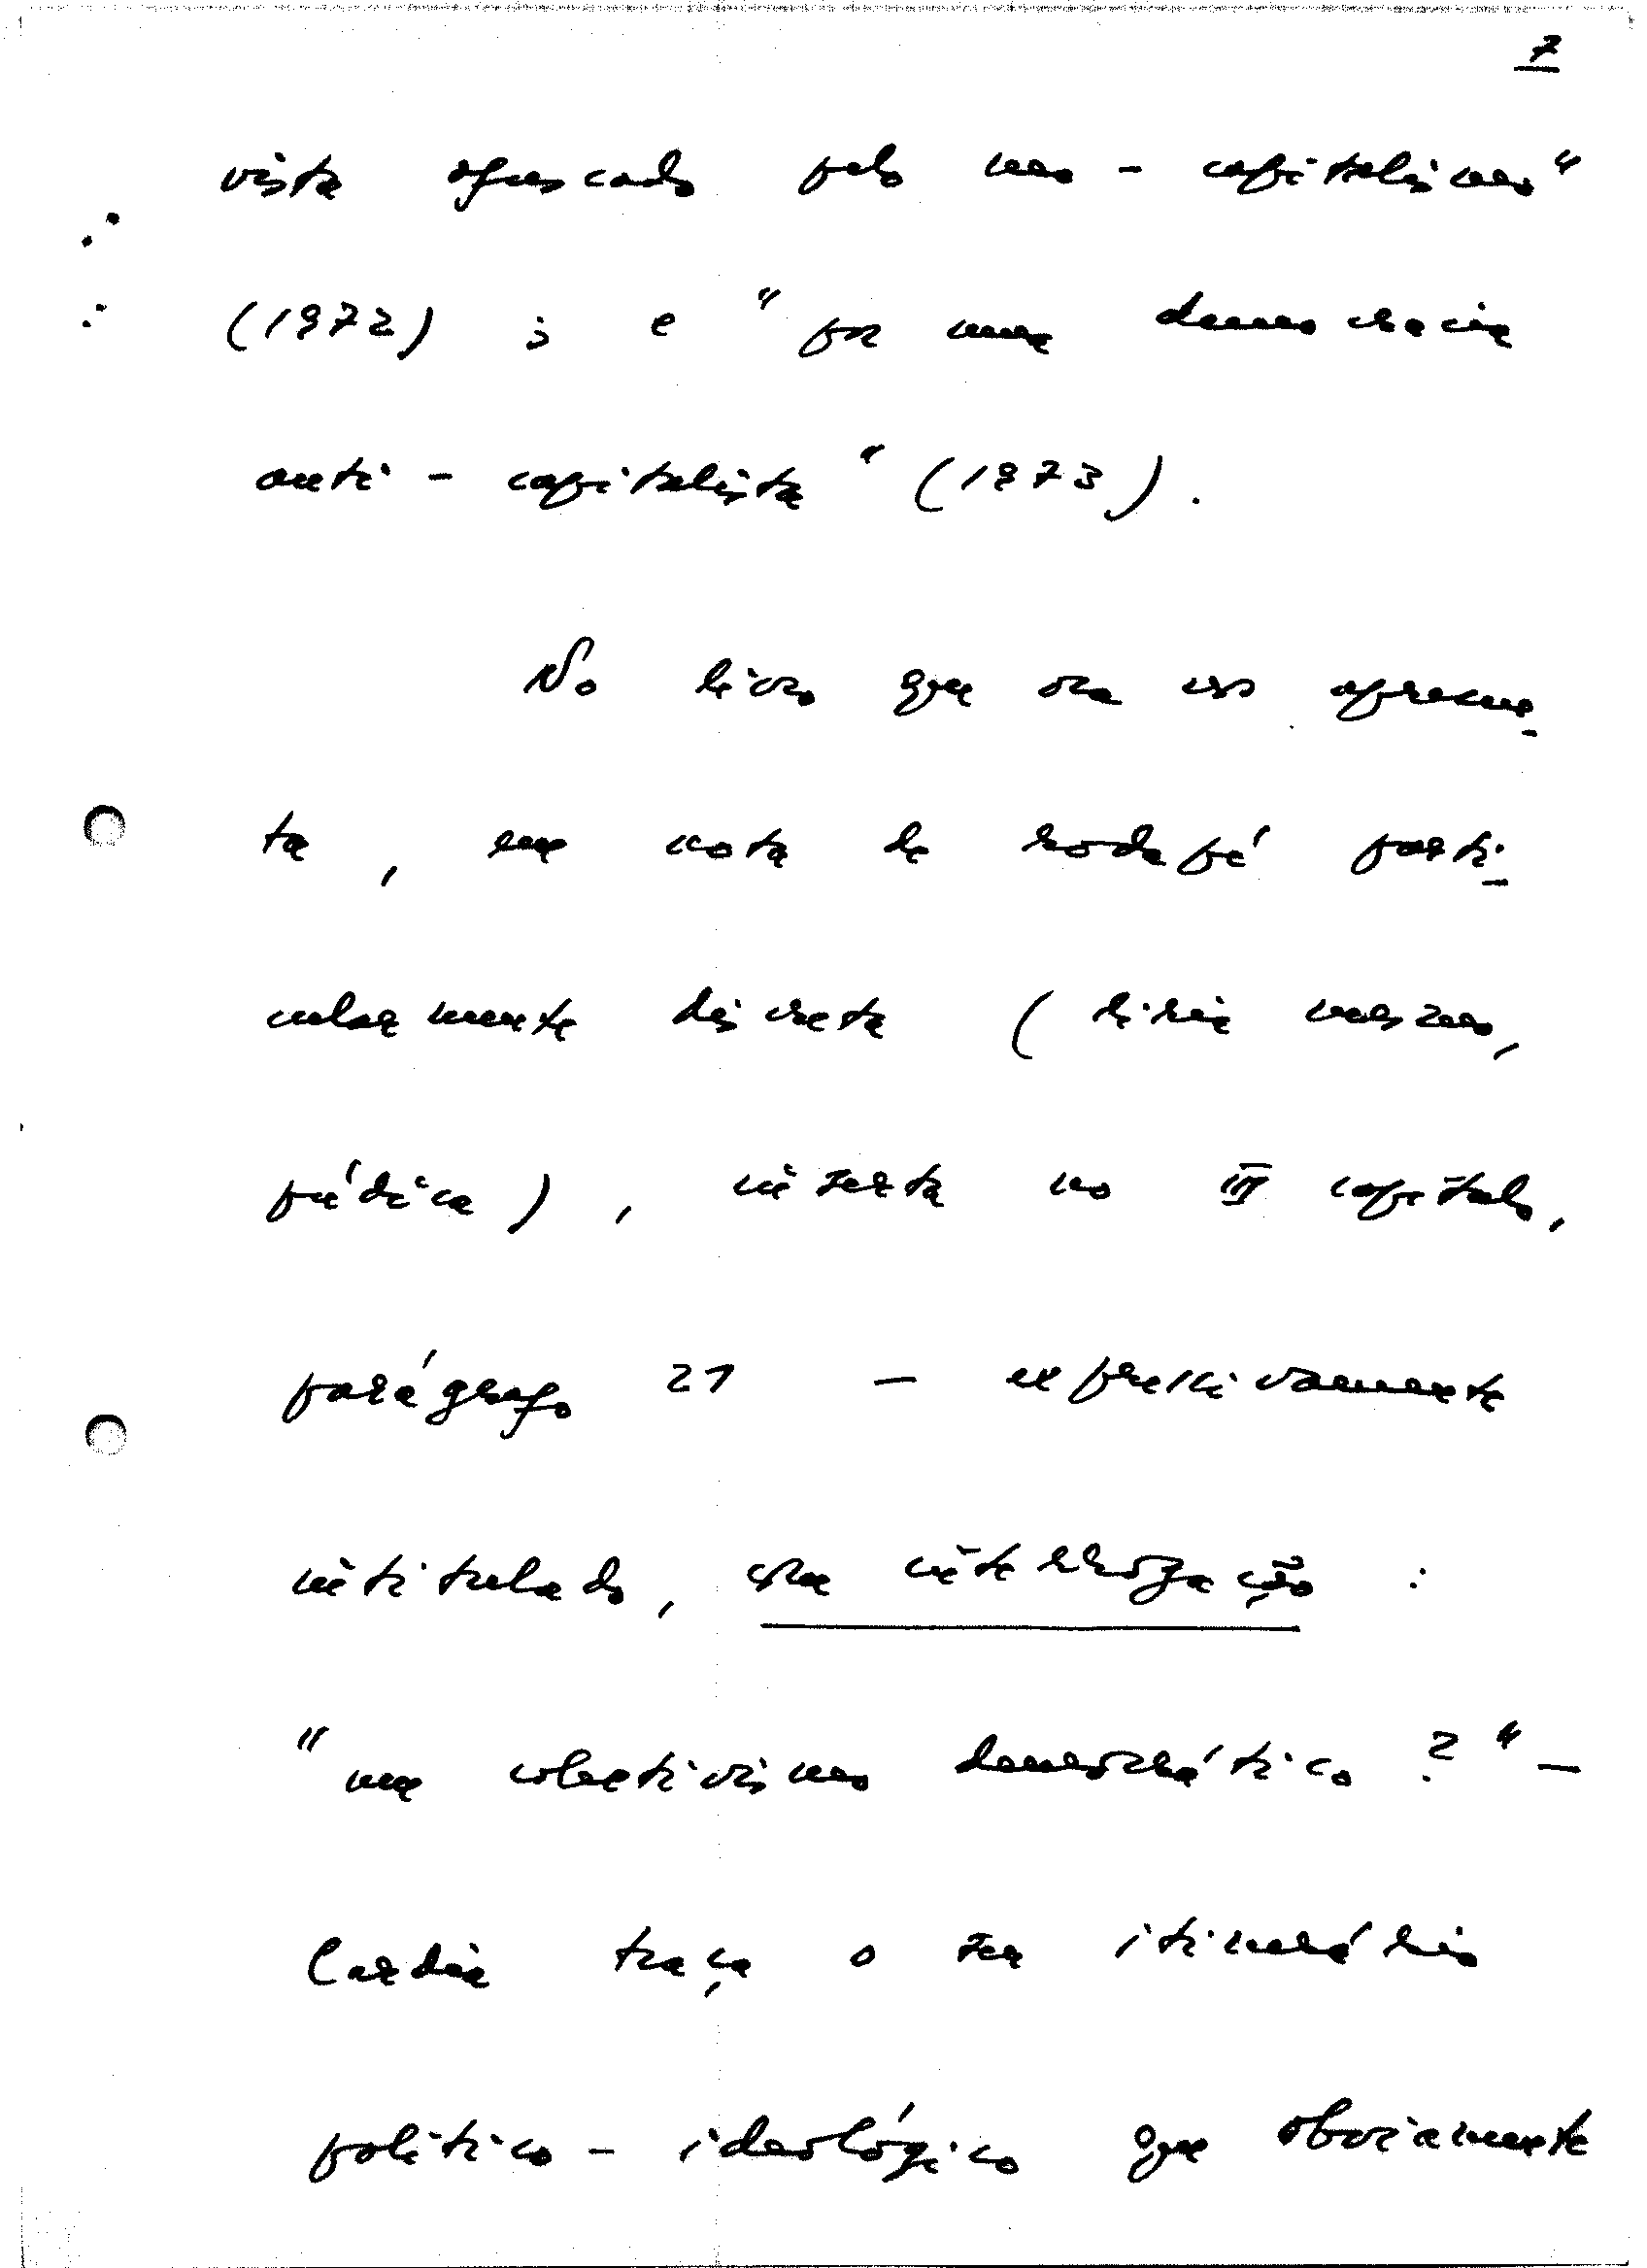 7
vista ofuscado pelo neo-capitalismo"
(1972); e "por uma democracia
anti-capitalista" (1973).
No livro que ora nos apresen
ta, em nota de rodapé parti
cularmente discreta (diria mesmo,
púdica), inserta no III capítulo,
parágrafo 21 — expressivamente
intitulado, em interrogação :
"um colectivismo democrático?" —
Cardia traça o seu itinerário
político-ideológico que obviamente